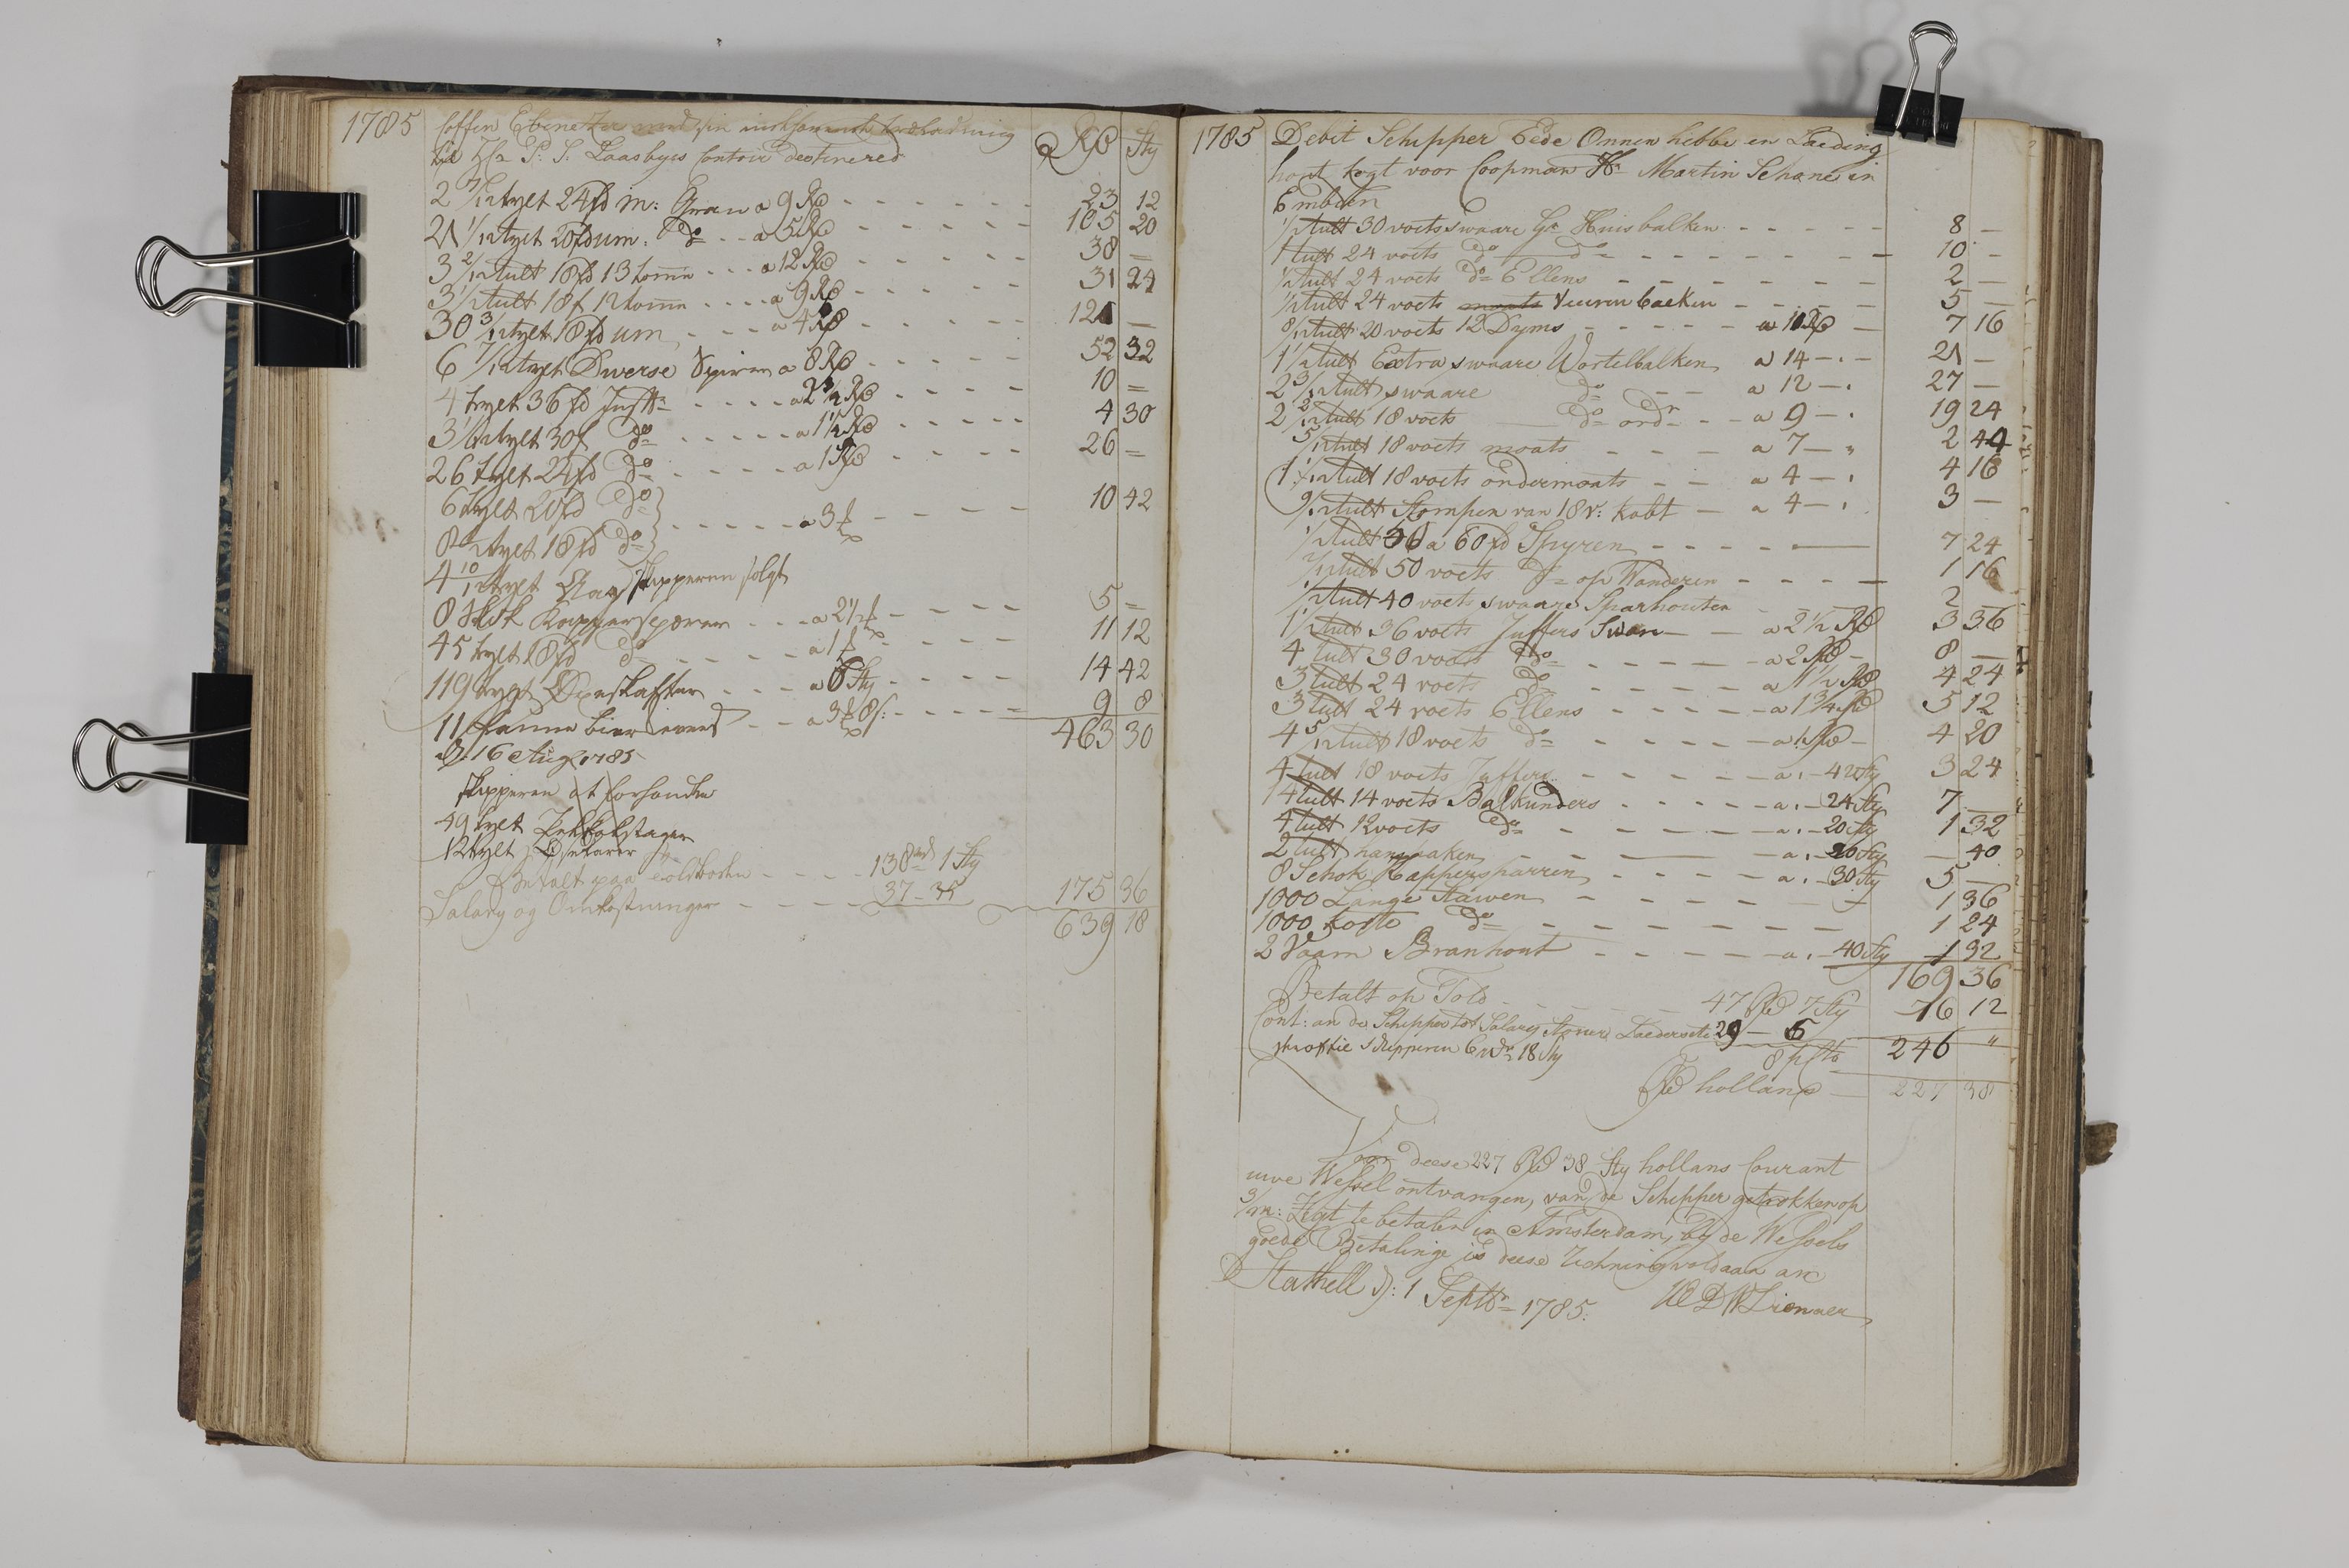 1785 Coffen Ebenetzer med sin indtagende trælading
til Hr P: S: Laasbyes Contoir destinered Rd Sty
2 7/12 tylt 24 fd m: Gran a 9 Rd 23 12
21 1/12 tylt 20 fd um. do a 5 Rd 105 20
3 2/12 tult 18 fd 13 tomm a 12 Rd 38 =
3 1/2 tult 18 f 12 tomm a 9 Rd 31 24
30 3/12 tylt 18 fd um a 4 Rd 121 —
6 7/12 tylt Diverse Spirer a 8 Rd 52 32
4 tylt 36 fd Juffr a 2 1/2 Rd 10 =
3 1/12 tylt 30 f do a 1 1/2 Rd 4 30
26 tylt 24 fd do a 1 Rd 26 =
6 tylt 20 fd do
8 tylt 18 fd do a 3 10 42
4 10/12 tylt skipperen solgt
8 skok Koppersparrer a 2 1/2 5 =
45 tylt 18 fd do a 1 11 12
119 tylt Øxeskafter a 6 Sty 14 42
11 faune bierkeveed a 3 8 s: 9 8
D. 16 Aug 1785 463 30
skipperen at forhandle
49 tylt
12 tylt
Betalt paa toldboden 138 rd 1 Sty
Salary og Omkostninger 37 - 35 175 36
639 18
1785 Debit Schipper Eede Onnen hebbe en Laeding
hout kogt voor Coopman Hr Martin Schane in
Embden
1/2 tult 30 voets swaare Gr Huisbalken 8 —
1 tult 24 voets do do 10 —
1/2 tult 24 voets do Ellens 2 —
1/2 tult 24 voets Veuren baelken 5 —
8/12 tult 20 voets 12 Dyms a 11 Rd 7 16
1 1/2 tult Extra swaare Wortelbalken a 14 21 —
2 3/12 tult swaare do a 12 27 —
2 2/12 tult 18 voets do ordr a 9 19 24
5/12 tult 18 voets moats a 7 2 44
1 1/12 tult 18 voets ondermoats a 4 4 16
9/12 tult Stompen van 18 v: kabt a 4 3 —
1/2 tult 56 a 60 fd Spyren 7 24
2/12 tult 50 voets do op Wanderen 1 16
1/2 tult 40 voets swaare Sparhouten 2
1 1/2 tult 36 voets Juffers Swar a 2 1/2 Rd 3 36
4 tult 30 voets do a 2 Rd 8 —
3 tult 24 voets do a 1 1/2 Rd 4 24
3 tult 24 voets Ellens a 1 3/4 Rd 5 12
4 5/12 tult 18 voets do a 1 Rd 4 20
4 tult 18 voets Juffers a 42 Sty 3 24
14 tult 14 voets Balkunders a 24 Sty 7 —
4 tult 12 voets do a 20 Sty 1 32
2 tult hanspaken a 20 Sty — 40
8 Schok Kappersparren a 30 Sty 5 —
1000 Lange Stawen 1 36
1000 korte do 1 24
2 Vaam Branhout a 40 Sty 1 32
169 36
Betalt op Told 47 Rd 7 Sty
Cont: an de Schipper tot Salary Laedersete 29 — 5 76 12
Schipperen 18 Sty 246 "
8 p Cto
Rd hollans 227 38
Voor deese 227 Rd 38 Sty hollans Courant
uwe Wessel ontvangen, van de Schipper getrokken op
3/m: Zigt te betalen in Amsterdam, by de Wessels
goede Betalinge is deese Rekning voldaan an
Stathell D: 1 Septbr 1785.